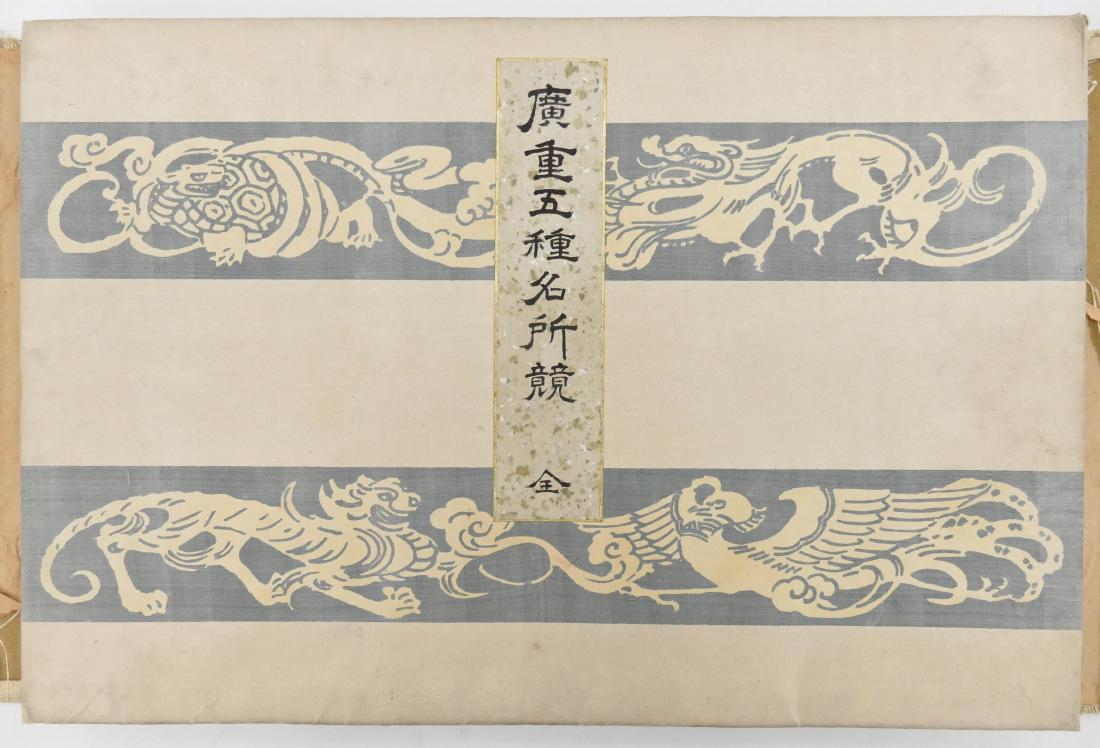 廣重五種名所競
全